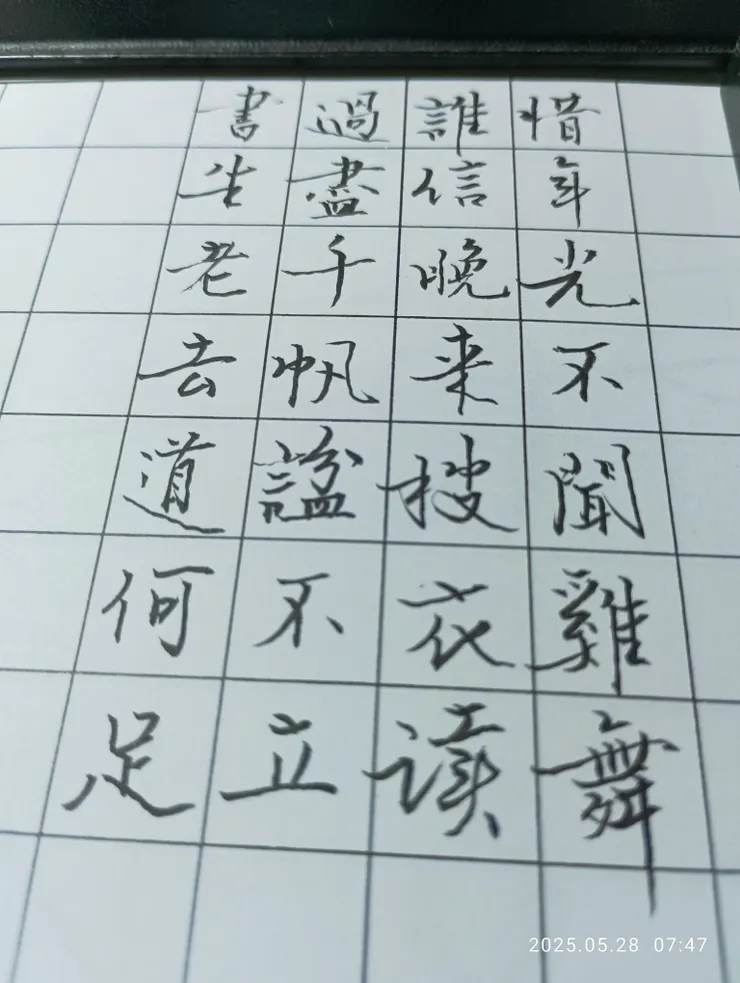 惜年光不聞雞舞
誰信晚来搜衣读
過盡千帆謚不立
書生老去道何足
2025.05.28 07:47